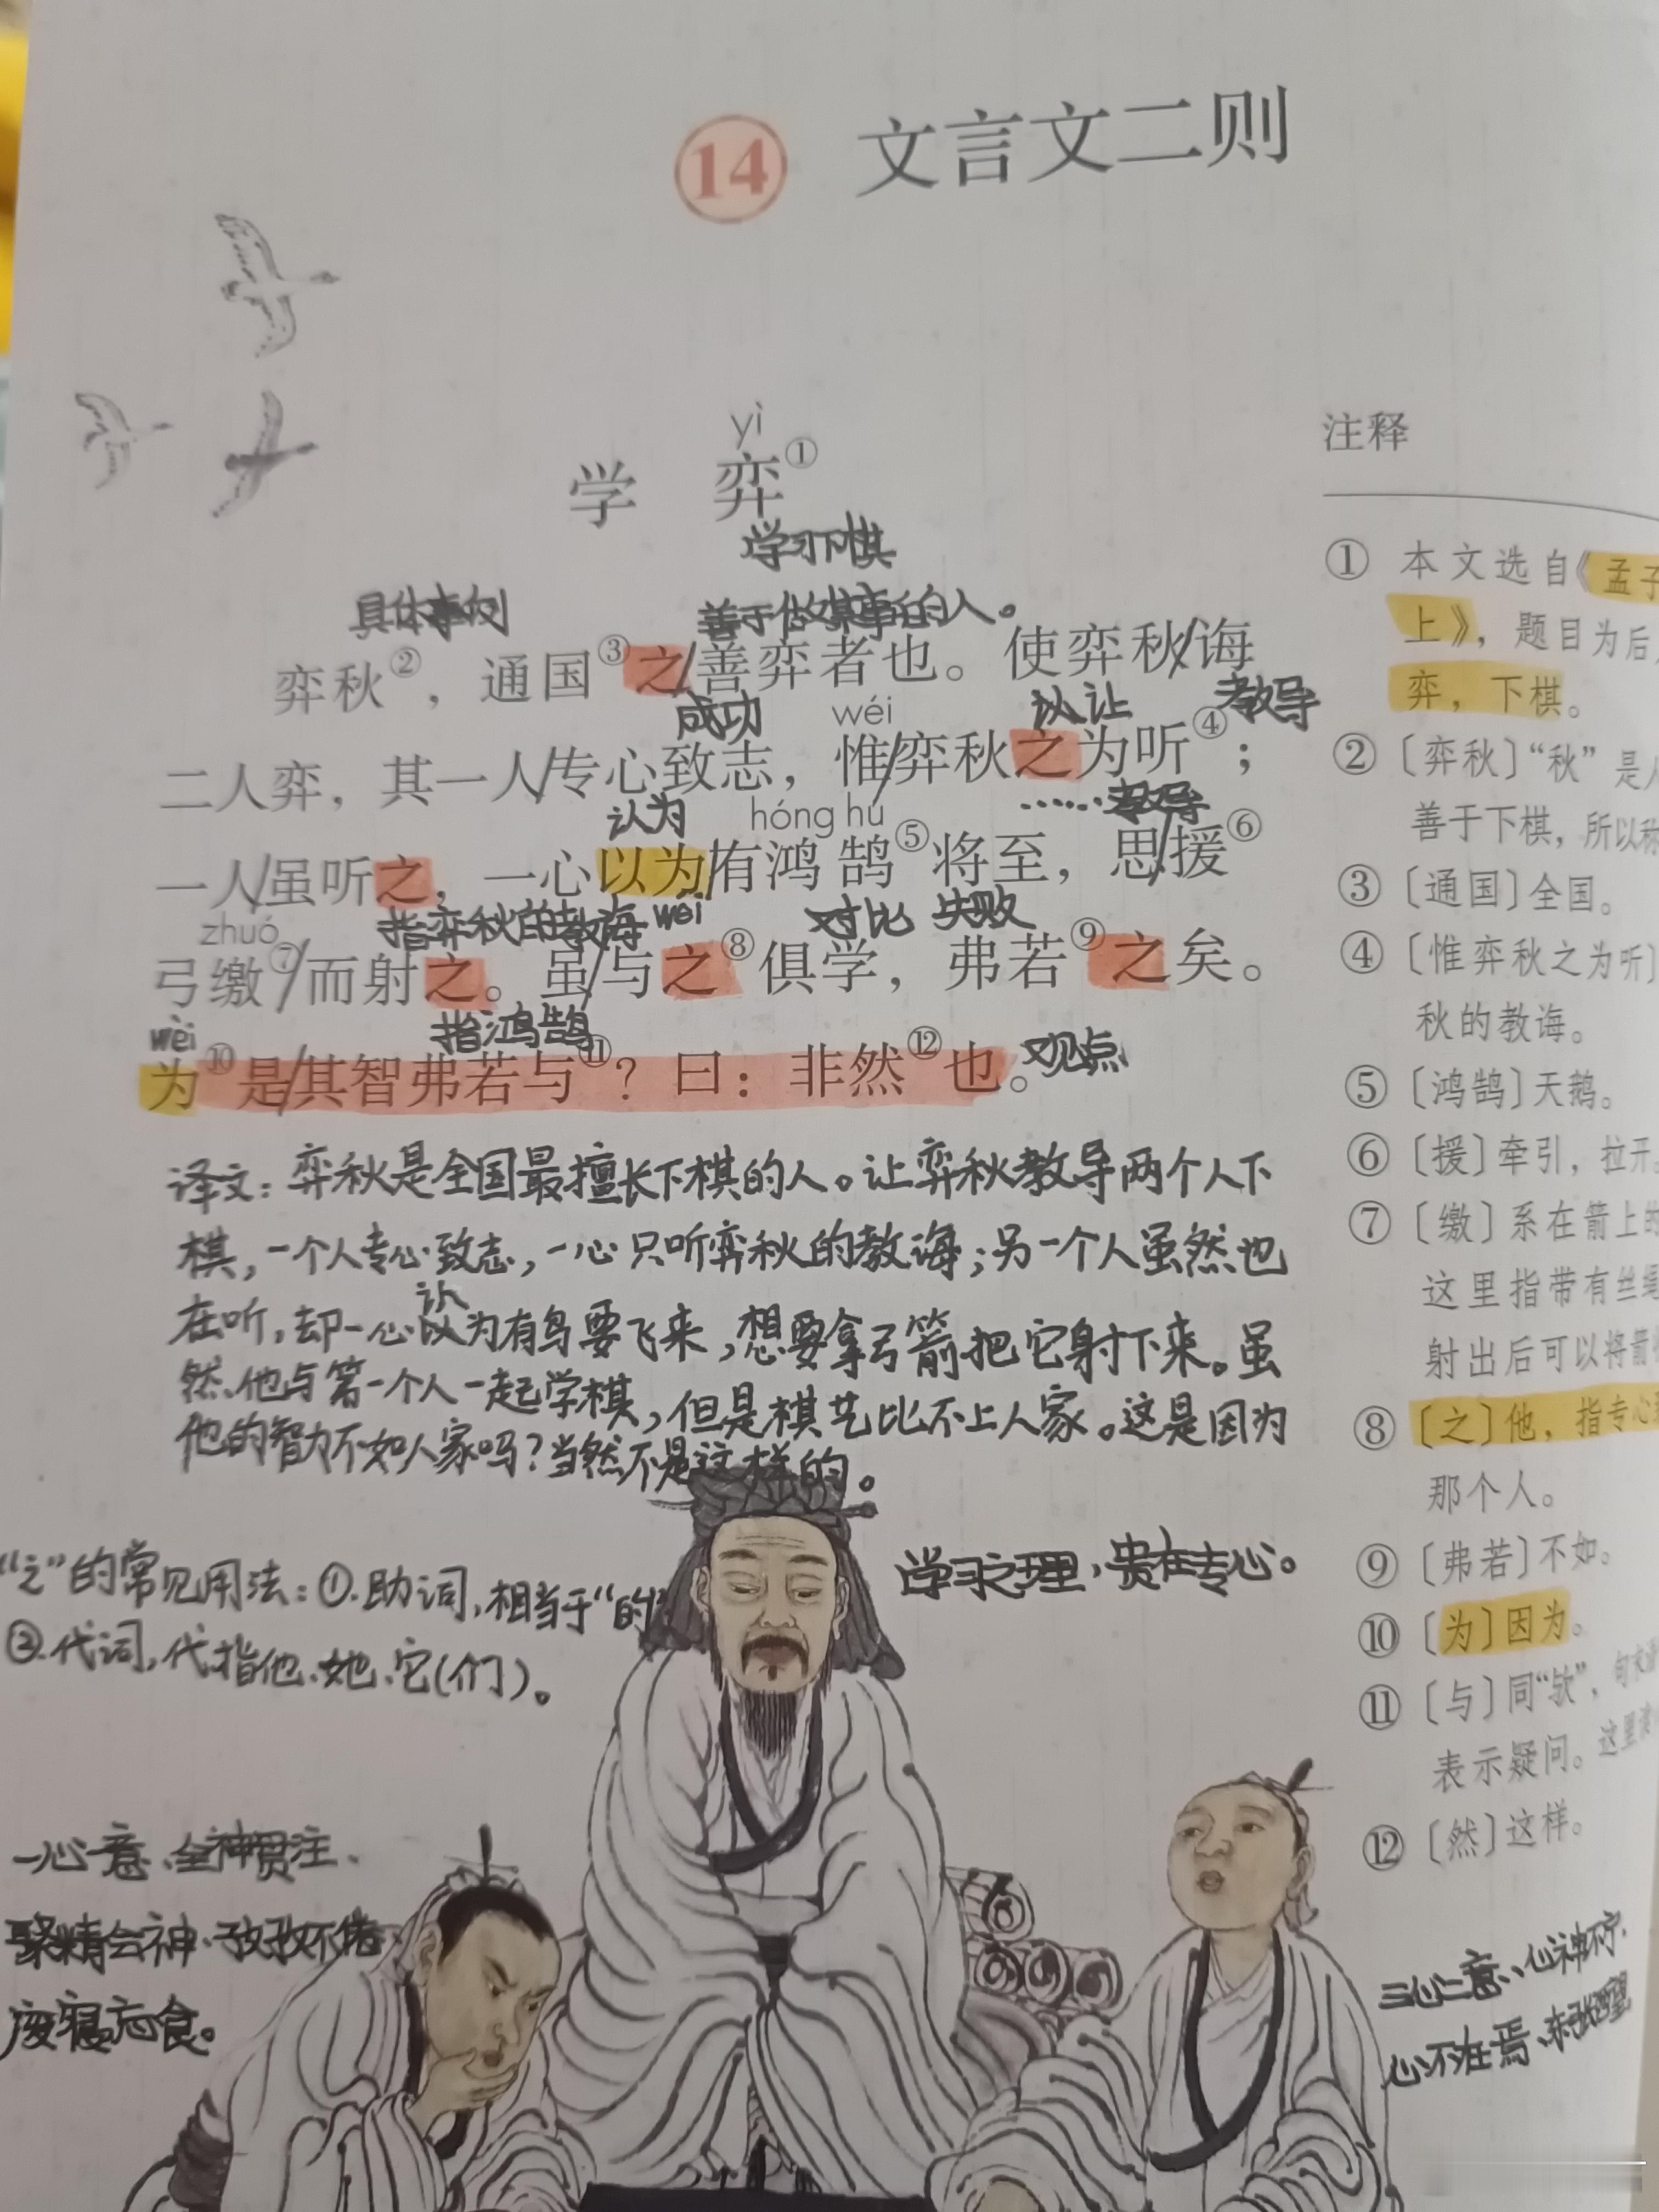 14 文言文二则
yì
学 弈①
学习下棋
具体事例 善于做某事的人。
弈秋②，通国③之/善弈者也。使弈秋/诲
成功 wéi 教导
二人弈，其一人/专心致志，惟/弈秋之为听④；
认为 hóng hú ……教导
一人/虽听之，一心以为/有鸿鹄⑤将至，思/援⑥
zhuó 指弈秋的教诲 wéi 对比 失败
弓缴⑦/而射之。虽/与之⑧俱学，弗若⑨之矣。
wèi 指鸿鹄
为⑩是/其智弗若与⑪？曰：非然⑫也。观点
译文：弈秋是全国最擅长下棋的人。让弈秋教导两个人下
棋，一个人专心致志，一心只听弈秋的教诲；另一个人虽然也
在听，却一心认为有鸟要飞来，想要拿弓箭把它射下来。虽
然他与第一个人一起学棋，但是棋艺比不上人家。这是因为
他的智力不如人家吗？当然不是这样的。
"之"的常见用法：①.助词，相当于"的"
②.代词，代指他、她、它(们)。
学习之理，贵在专心。
一心一意、全神贯注、
聚精会神、孜孜不倦、
废寝忘食。
三心二意、心神不宁、
心不在焉、东张西望
注释
① 本文选自《孟子
上》，题目为后
弈，下棋。
② 〔弈秋〕"秋"是人
善于下棋，所以称
③ 〔通国〕全国。
④ 〔惟弈秋之为听〕
秋的教诲。
⑤ 〔鸿鹄〕天鹅。
⑥ 〔援〕牵引，拉开。
⑦ 〔缴〕系在箭上的
这里指带有丝绳
射出后可以将箭
⑧ 〔之〕他，指专心
那个人。
⑨ 〔弗若〕不如。
⑩ 〔为〕因为。
⑪ 〔与〕同"欤"，句末
表示疑问。这里读
⑫ 〔然〕这样。